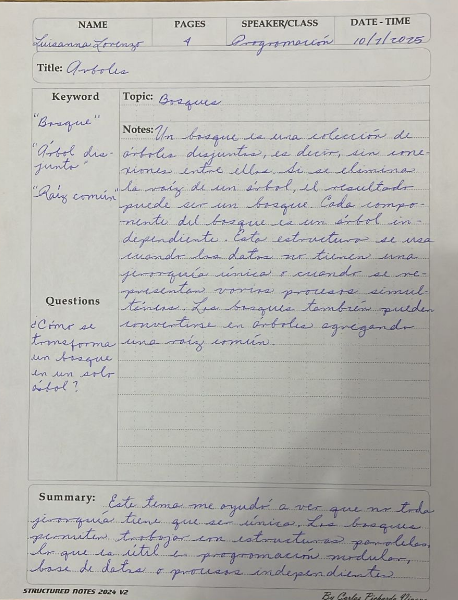 NAME PAGES SPEAKER/CLASS DATE - TIME
Luisanna Lorenzo 4 Programación 10/7/2025
Title: Arboles
Keyword
"Bosque"
"Árbol dis-
junto"
"Raíz común"
Questions
¿Cómo se
transforma
un bosque
en un solo
árbol?
Topic: Bosques
Notes: Un bosque es una colección de
árboles disjuntos, es decir, sin cone-
xiones entre ellos. Si se elimina
la raíz de un árbol, el resultado
puede ser un bosque. Cada compo-
nente del bosque es un árbol in-
dependiente. Esta estructura se usa
cuando los datos no tienen una
jerarquía única o cuando se re-
presentan varios procesos simul-
táneos. Los bosques también pueden
convertirse en árboles agregando
una raíz común.
Summary: Este tema me ayudó a ver que no toda
jerarquía tiene que ser única. Los bosques
permiten trabajar con estructuras paralelas,
lo que es útil en programación modular,
base de datos o procesos independientes
STRUCTURED NOTES 2024 V2 By Carlos Pichardo